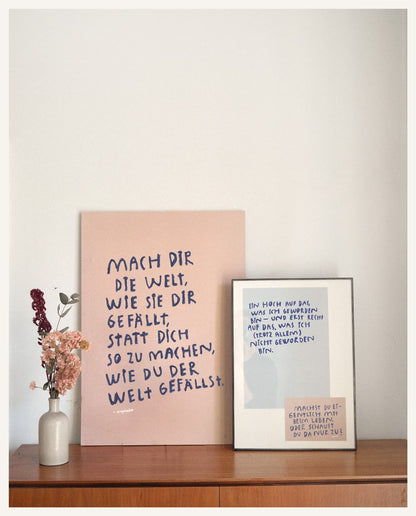 MACH DIR
DIE WELT,
WIE SIE DIR
GEFÄLLT,
STATT DICH
SO ZU MACHEN,
WIE DU DER
WELT GEFÄLLST.
EIN HOCH AUF DAS,
WAS ICH GEWORDEN
BIN – UND ERST RECHT
AUF DAS, WAS ICH
(TROTZ ALLEM)
NICHT GEWORDEN
BIN.
MACHST DU EI-
GENTLICH MIT
BEIM LEBEN,
ODER SCHAUST
DU DA NUR ZU?